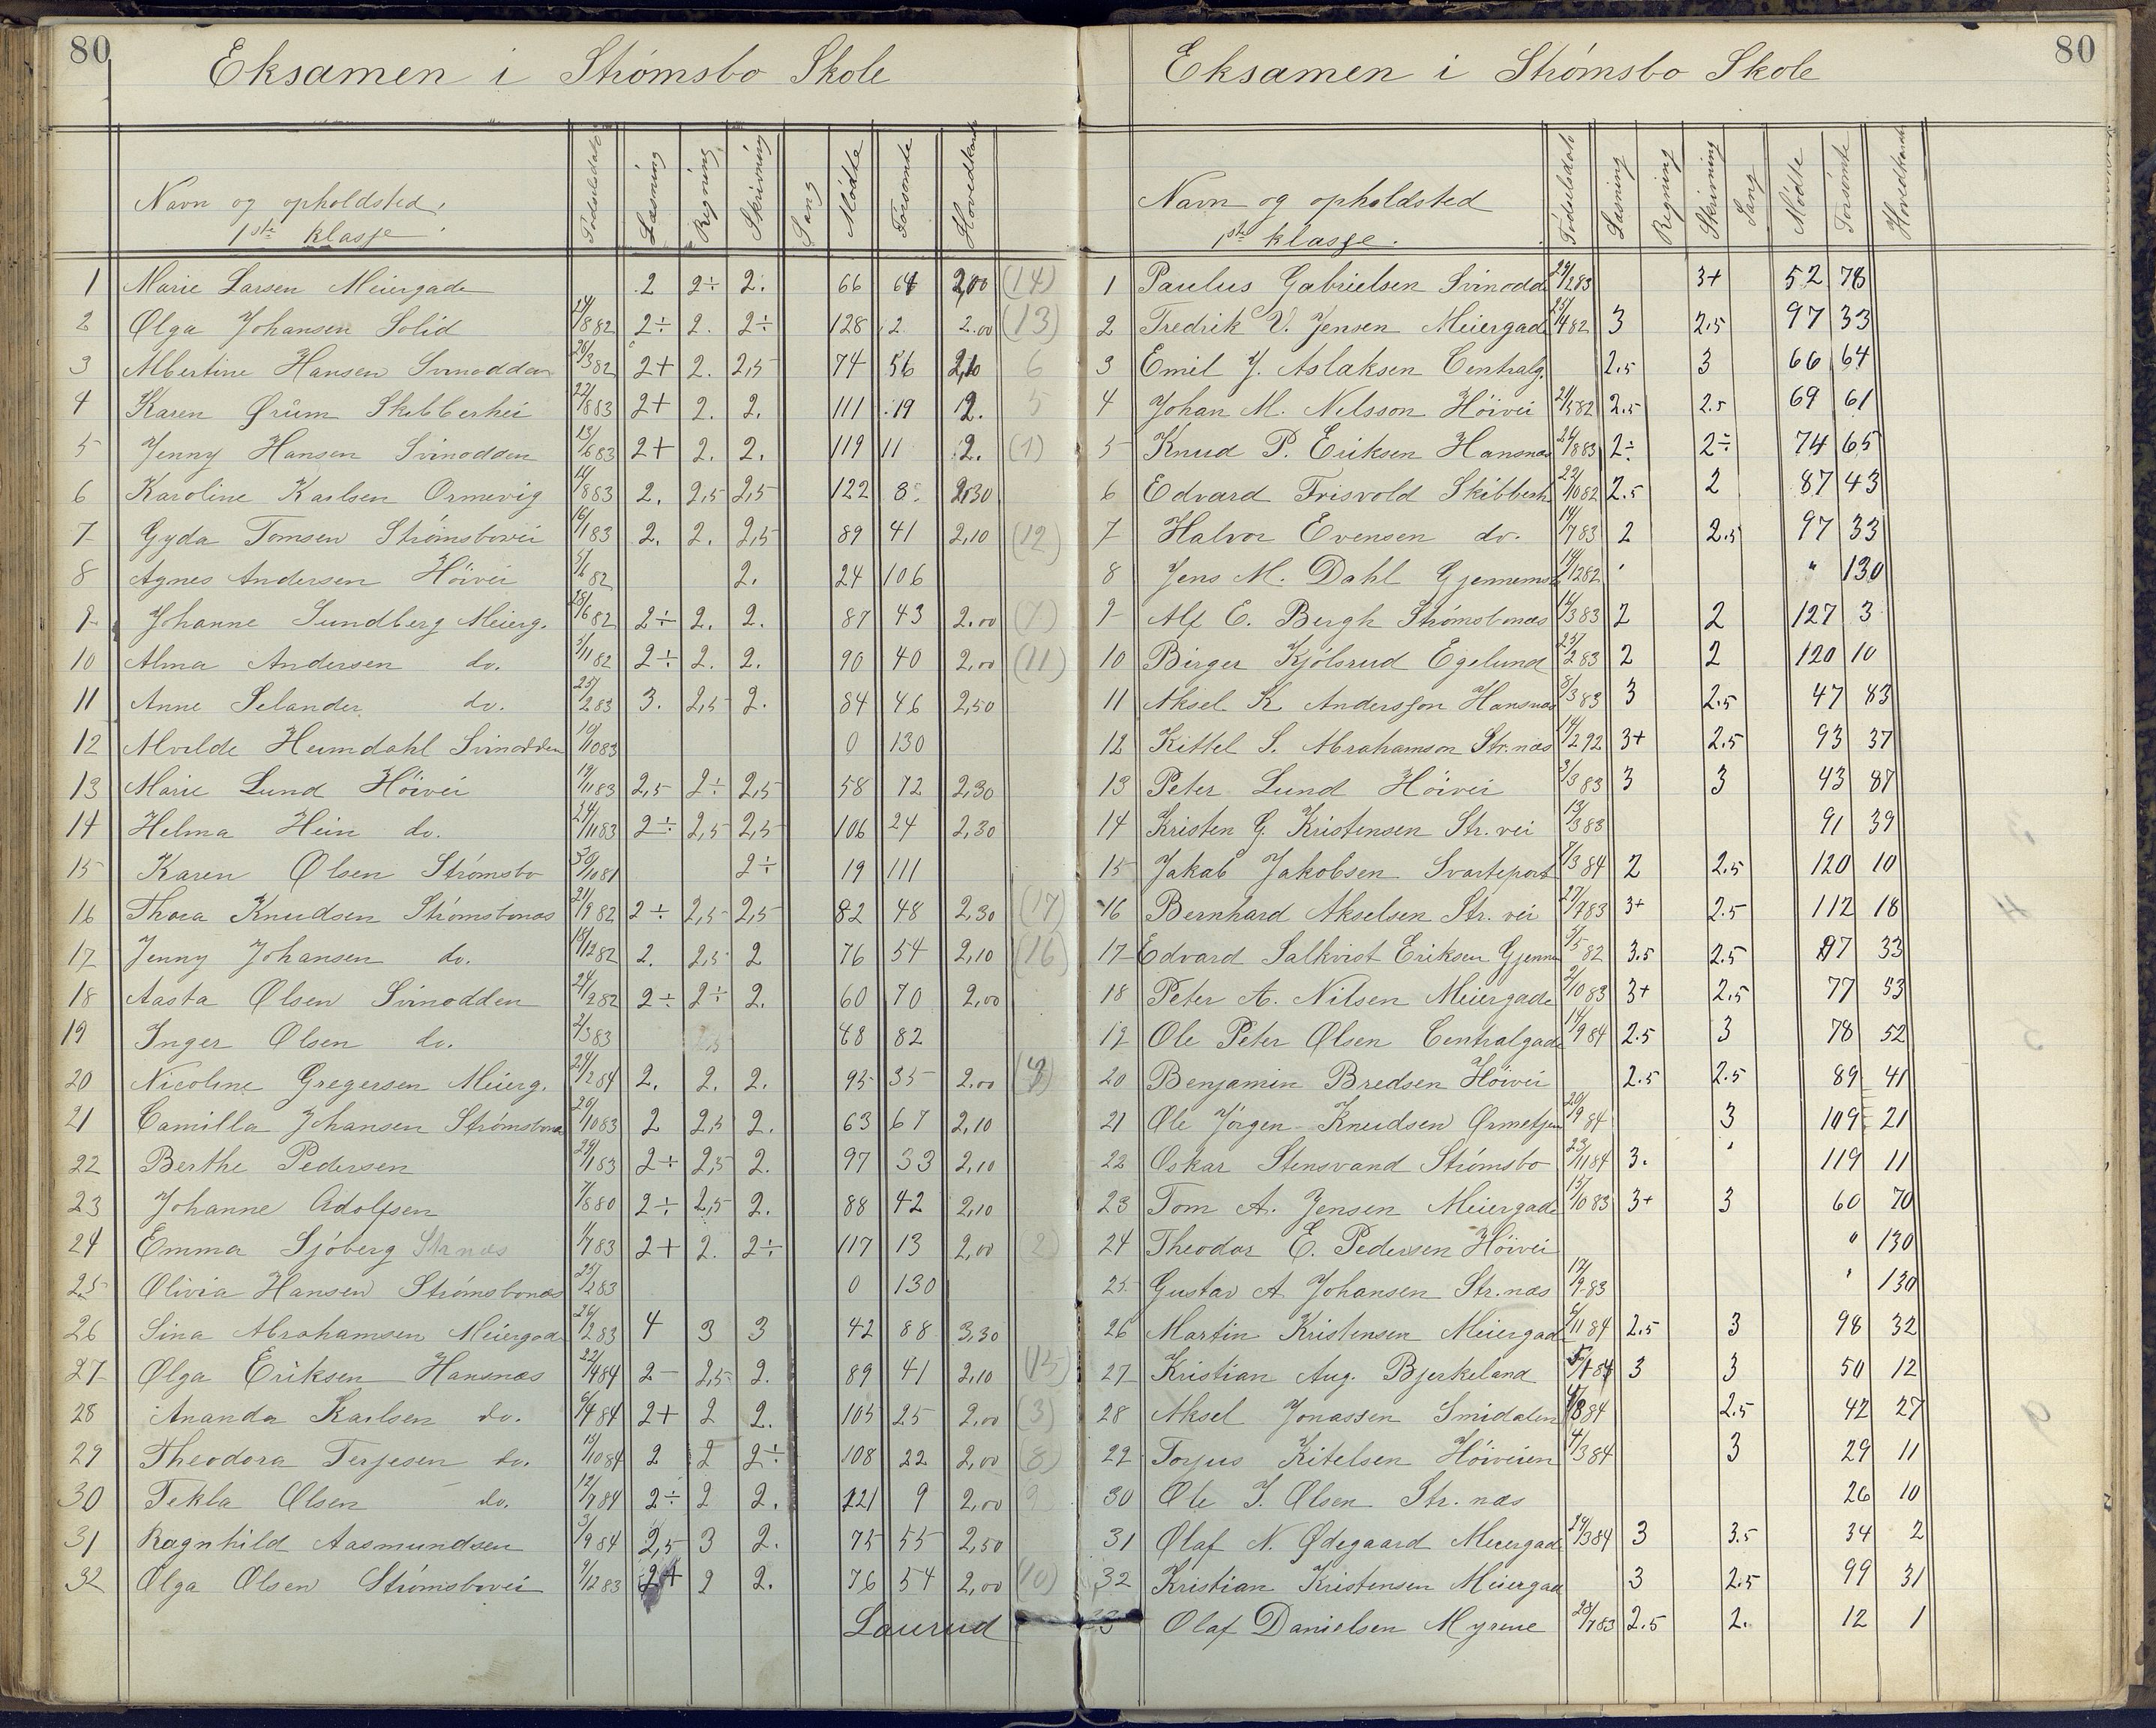 80
Eksamen i Strømsbo Skole
Navn og opholdsted. Fødselsdato Læsning Regning Skrivning Sang Mødte Forsømte Hovedkarak
1ste klasse
1 Marie Larsen Meiergade 2 2÷ 2. 66 64 2,00 (14)
2 Olga Johansen Solid 14/8 82 2÷ 2. 2÷ 128 2 2.00 (13)
3 Albertine Hansen Svinodden 26/3 82 2+ 2. 2,5 74 56 2,10 6
4 Karen Ørüm Skibberhei 22/8 83 2+ 2. 2. 111 19 2. 5
5 Jenny Hansen Svinodden 13/6 83 2+ 2. 2. 119 11 2. (1)
6 Karoline Karlsen Ormevig 14/8 83 2. 2,5 2,5 122 8 2,30
7 Gyda Tomsen Strømsbovei 16/1 83 2. 2. 2,5 89 41 2,10 (12)
8 Agnes Andersen Höivei 5/6 82 2. 24 106
9 Johanne Sundberg Meierg. 28/6 82 2÷ 2. 2. 87 43 2.00 (7)
10 Alma Andersen do. 5/11 82 2÷ 2. 2. 90 40 2,00 (11)
11 Anne Selander do. 25/2 83 3. 2,5 2. 84 46 2,50
12 Alvilde Heimdahl Svinodden 10/10 83 0 130
13 Marie Lund Höivei 19/11 83 2,5 2÷ 2,5 58 72 2,30
14 Helma Hein do. 24/11 83 2÷ 2,5 2,5 106 24 2,30
15 Karen Olsen Strømsbo 30/10 81 2÷ 19 111
16 Thora Knudsen Strømsbonæs 21/9 82 2÷ 2,5 2,5 82 48 2,30 (17)
17 Jenny Johansen do. 18/12 82 2. 2,5 2 76 54 2,10 (16)
18 Aasta Olsen Svinodden 24/2 82 2÷ 2÷ 2. 60 70 2,00
19 Inger Olsen do. 2/3 83 48 82
20 Nicoline Gregersen Meierg. 24/2 84 2. 2. 2. 95 35 2.00 (4)
21 Camilla Johansen Strømsbonæs 20/10 83 2 2,5 2. 63 67 2,10
22 Berthe Pedersen 29/1 83 2÷ 2,5 2. 97 33 2,10
23 Johanne Adolfsen 7/8 80 2÷ 2,5 2. 88 42 2,10
24 Emma Sjöberg Str næs 1/7 83 2+ 2. 2÷ 117 13 2,00 2)
25 Olivia Hansen Strømsbonæs 25/2 83 0 130
26 Sina Abrahamsen Meiergad 26/2 83 4 3 3 42 88 3,30
27 Olga Eriksen Hansnæs 22/4 84 2- 2,5 2. 89 41 2,10 (15)
28 Ananda Karlsen do. 6/4 84 2+ 2 2. 105 25 2,00 (3)
29 Theodora Terjesen do. 15/10 84 2 2 2÷ 108 22 2,00 (8)
30 Tekla Olsen do. 12/7 84 2÷ 2 2. 121 9 2,00 9
31 Ragnhild Aasmundsen 3/9 84 2,5 3 2. 75 55 2,50
32 Olga Olsen Strømsbovei 9/12 83 2+ 2 2. 76 54 2,00 (10)
Laurud
80
Eksamen i Strømsbo Skole
Navn og opholdsted Fødselsdato Læsning Regning Skrivning Sang Mødte Forsømte Hovedkarak
1ste klasse.
1 Paulus Gabrielsen Svinodd 29/12 83 3+ 52 78
2 Fredrik V. Jensen Meiergade 25/4 82 3 2.5 97 33
3 Emil J. Aslaksen Centralg. 2.5 3 66 64
4 Johan M. Nilsson Höivei 21/5 82 2.5 2.5 69 61
5 Knud P. Eriksen Hansnæs 24/8 83 2÷ 2÷ 74 65
6 Edvard Frisvold Skibberh. 22/10 82 2.5 2 87 43
7 Halvor Evensen do. 14/7 83 2 2.5 97 33
8 Jens M. Dahl Gjennemst. 14/12 82 " 130
9 Alf E. Bergh Strømsbonæs 16/3 83 2 2 127 3
10 Birger Kjölsrud Egelund 23/2 83 2 2 120 10
11 Aksel K. Andersson Hansnæs 8/3 83 3 2.5 47 83
12 Kittel S. Abrahamson Str. næs 14/2 92 3+ 2.5 93 37
13 Peter Lund Höivei 3/3 83 3 3 43 87
14 Kristen G. Kristensen Str. vei 13/3 83 91 39
15 Jakab Jakobsen Svarteport 7/3 84 2 2.5 120 10
16 Bernhard Akselsen Str. vei 27/7 83 3+ 2.5 112 18
17 Edvard Salkvist Eriksen Gjenne 5/5 82 3.5 2.5 97 33
18 Peter A. Nilsen Meiergade 2/10 83 3+ 2.5 77 53
19 Ole Peter Olsen Centralgade 14/9 84 2.5 3 78 52
20 Benjamin Bredsen Höivei 2.5 2.5 89 41
21 Ole Jörgen Knudsen Ormetjen 20/9 84 3 109 21
22 Oskar Stensvand Strømsbo 23/11 84 3. " 119 11
23 Tom A. Jensen Meiergade 15/10 83 3+ 3 60 70
24 Theodor E. Pedersen Höivei " 130
25 Gustav A Johansen Str. næs 12/9 83 " 130
26 Martin Kristensen Meiergade 6/11 84 2.5 3 98 32
27 Kristian Aug. Bjerkeland 5/1 84 3 3 50 12
28 Aksel Jonassen Smidalen 4/8 84 2.5 42 27
29 Torjus Kitelsen Höiveien 4/3 84 3 29 11
30 Ole J. Olsen Str. næs 26 10
31 Olaf N. Ødegaard Meiergade 24/3 84 3 3.5 34 2
32 Kristian Kristensen Meiergad 3 2.5 99 31
33 Olaf Danielsen Myrene 28/7 83 2.5 2. 12 1